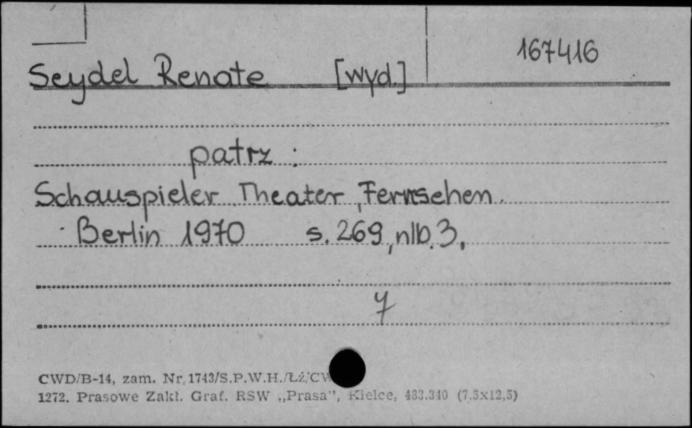 167416
Seydel Renate [wyd.]
patrz :
Schauspieler Theater, Fernsehen.
Berlin 1970 s. 269, nlb. 3.
y
CWD/B-14, zam. Nr. 1743/S.P.W.H./Łź/CW
1272. Prasowe Zakł. Graf. RSW „Prasa", Kielce, 483.340 (7,5x12,5)